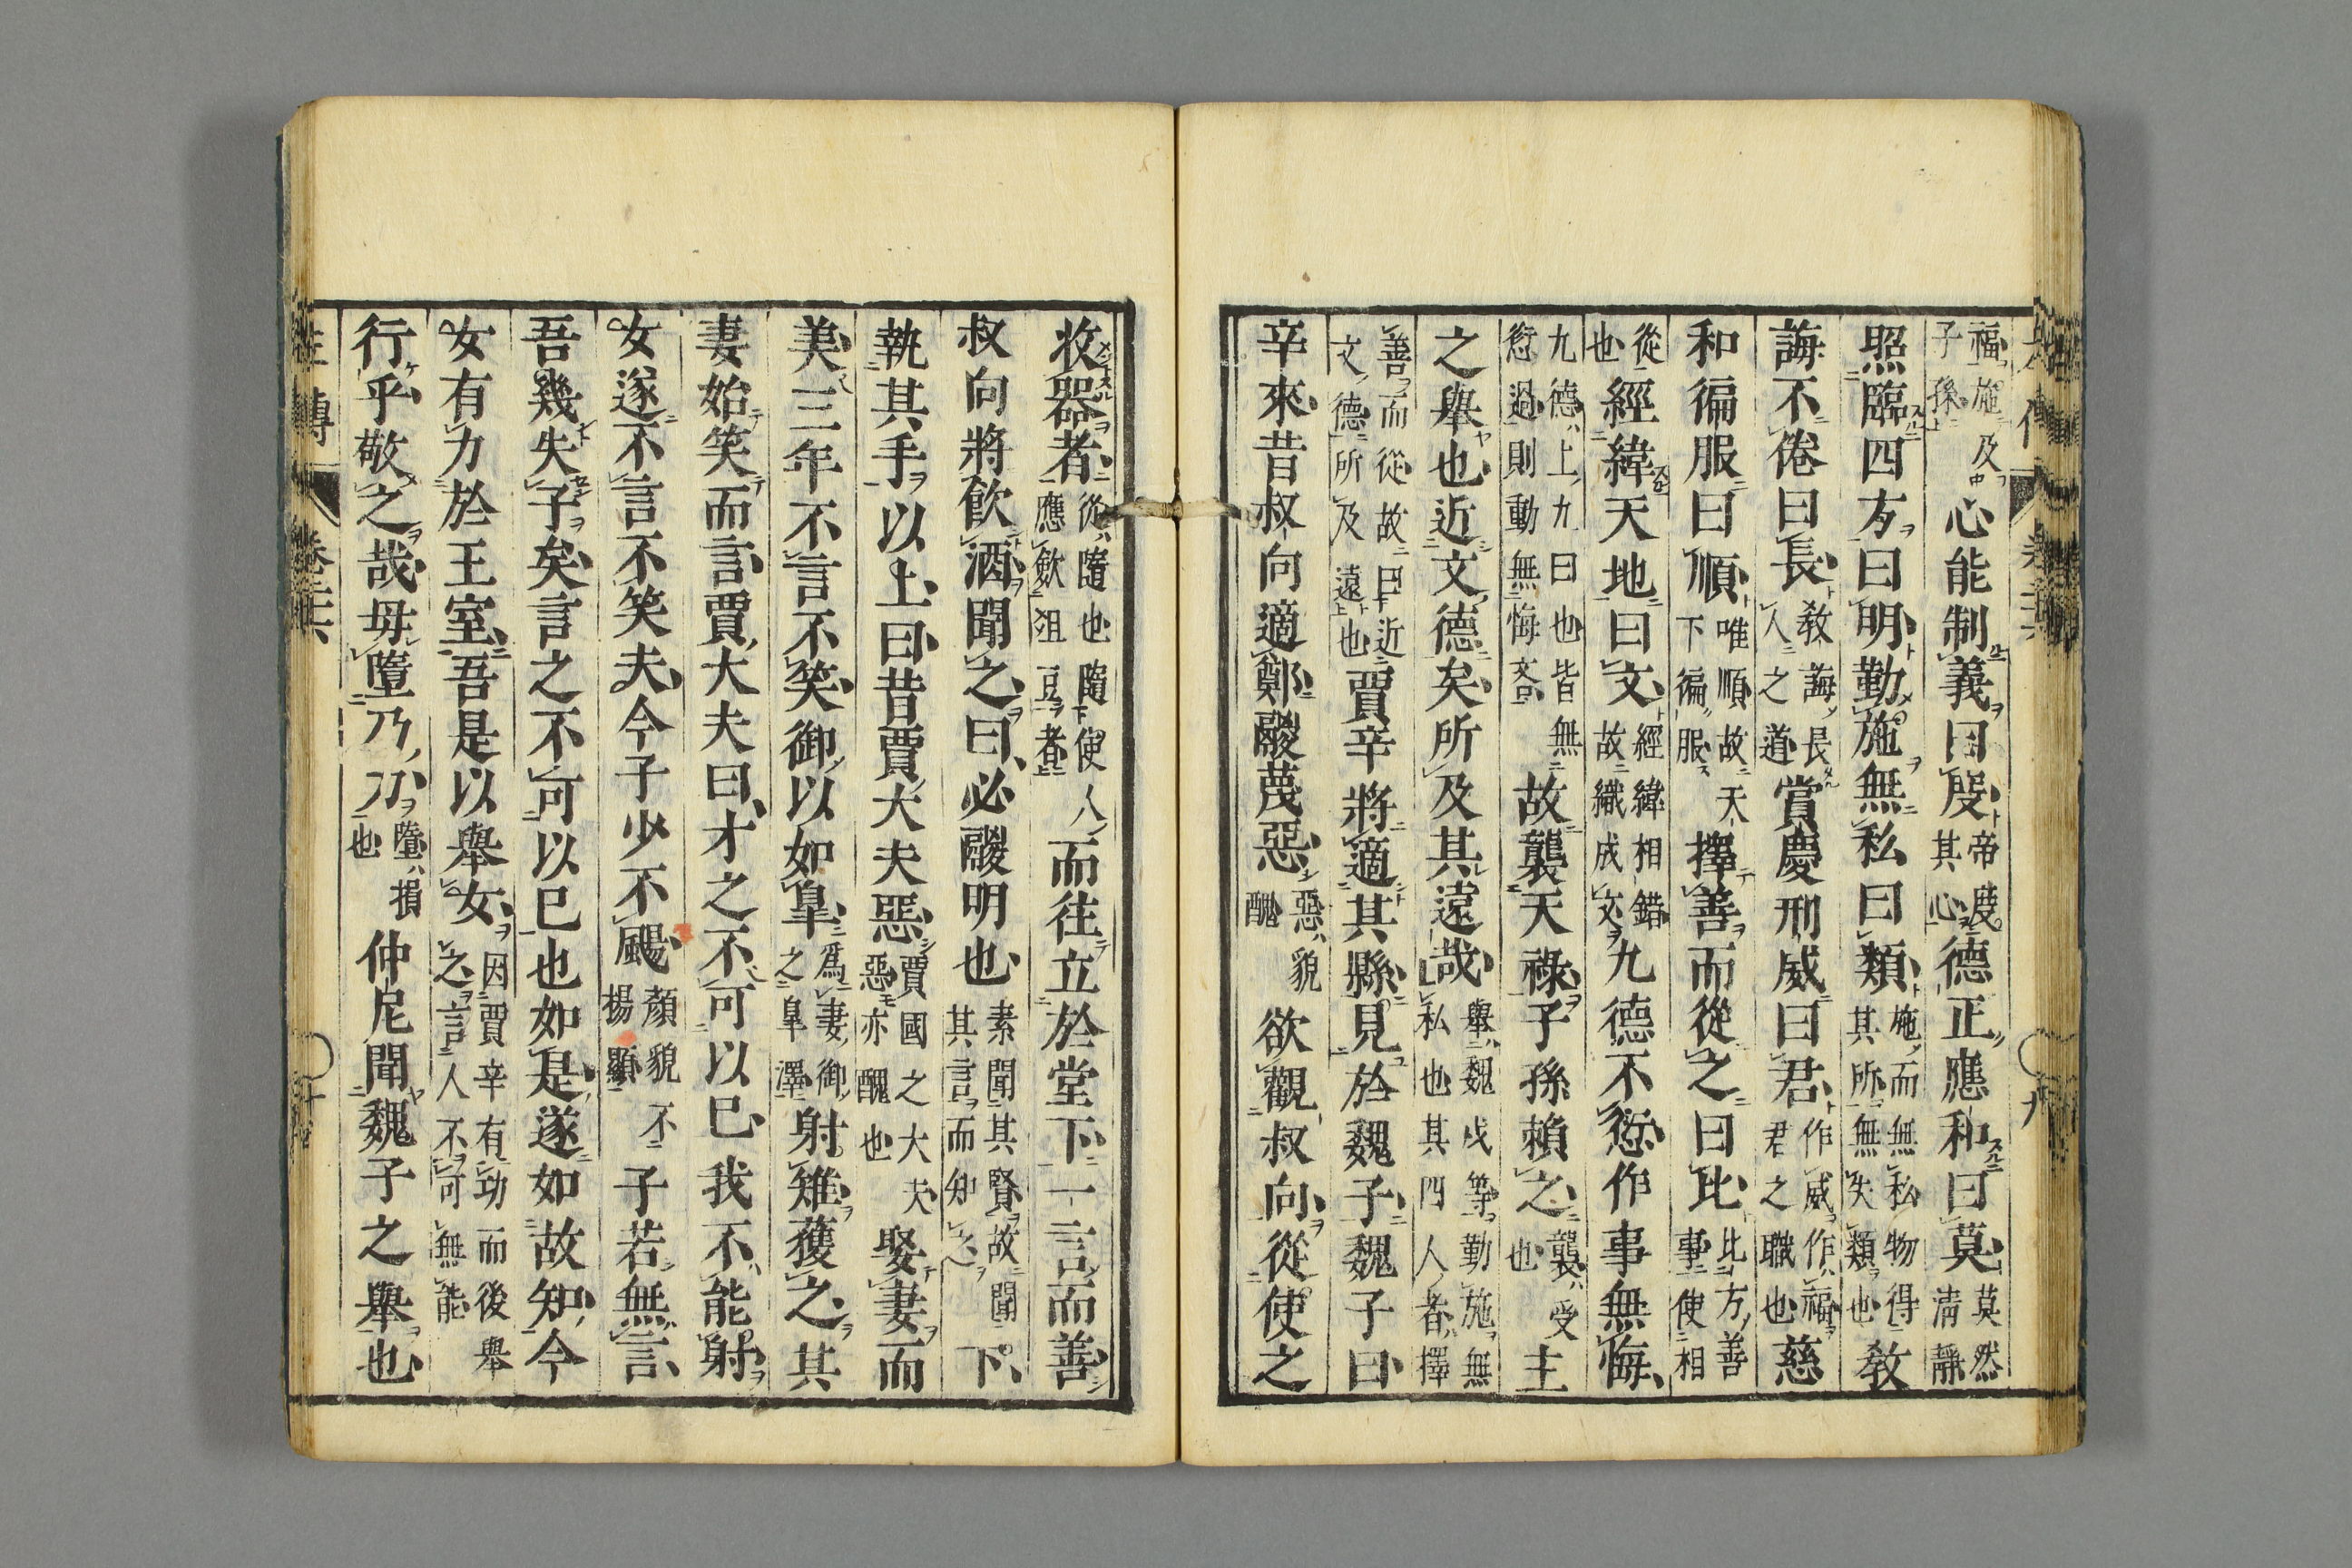 福施及子孫心能制義曰度帝度其心德正應和曰莫莫然清靜
照臨四方曰明勤施無私曰類施而無私物得其所無失類也教
誨不倦曰長教誨長人之道賞慶刑威曰君作威作福君之職也慈
和徧服曰順唯順故天下徧服擇善而從之曰比比方善事使相
從也經緯天地曰文經緯相錯故織成文九德不愆作事無悔
九德上九曰也皆無愆過則動無悔吝故襲天祿子孫賴之襲受也主
之舉也近文德矣所及其遠哉舉魏戊等勤施無私也其四人者擇
善而從故曰近文德所及遠也賈辛將適其縣見於魏子魏子曰
辛來昔叔向適鄭鬷蔑惡惡貌醜欲觀叔向從使之
收器者從隨也隨使人應斂俎豆者而往立於堂下一言而善
叔向將飲酒聞之曰必鬷明也素聞其賢故聞其言而知之下
執其手以上曰昔賈大夫惡賈國之大夫惡亦醜也娶妻而
美三年不言不笑御以如皐爲妻御之皐澤射雉獲之其
妻始笑而言賈大夫曰才之不可以已我不能射
女遂不言不笑夫今子少不颺顏貌不揚顯子若無言
吾幾失子矣言之不可以已也如是遂如故知今
女有力於王室吾是以舉女因賈辛有功而後舉之言人不可無能
行乎敬之哉毋墮乃力墮損也仲尼聞魏子之舉也